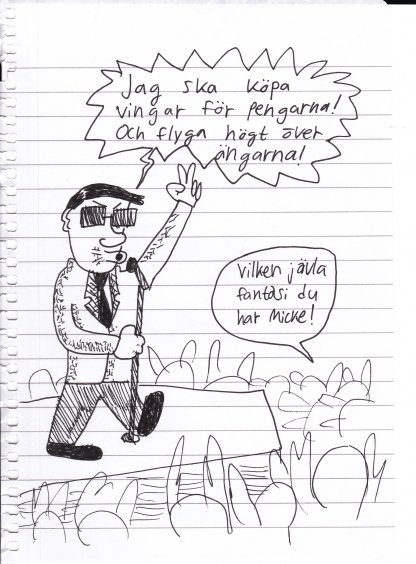 Jag ska köpa
vingar för pengarna!
Och flyga högt över
ängarna!
Vilken jävla
fantasi du
har Micke!